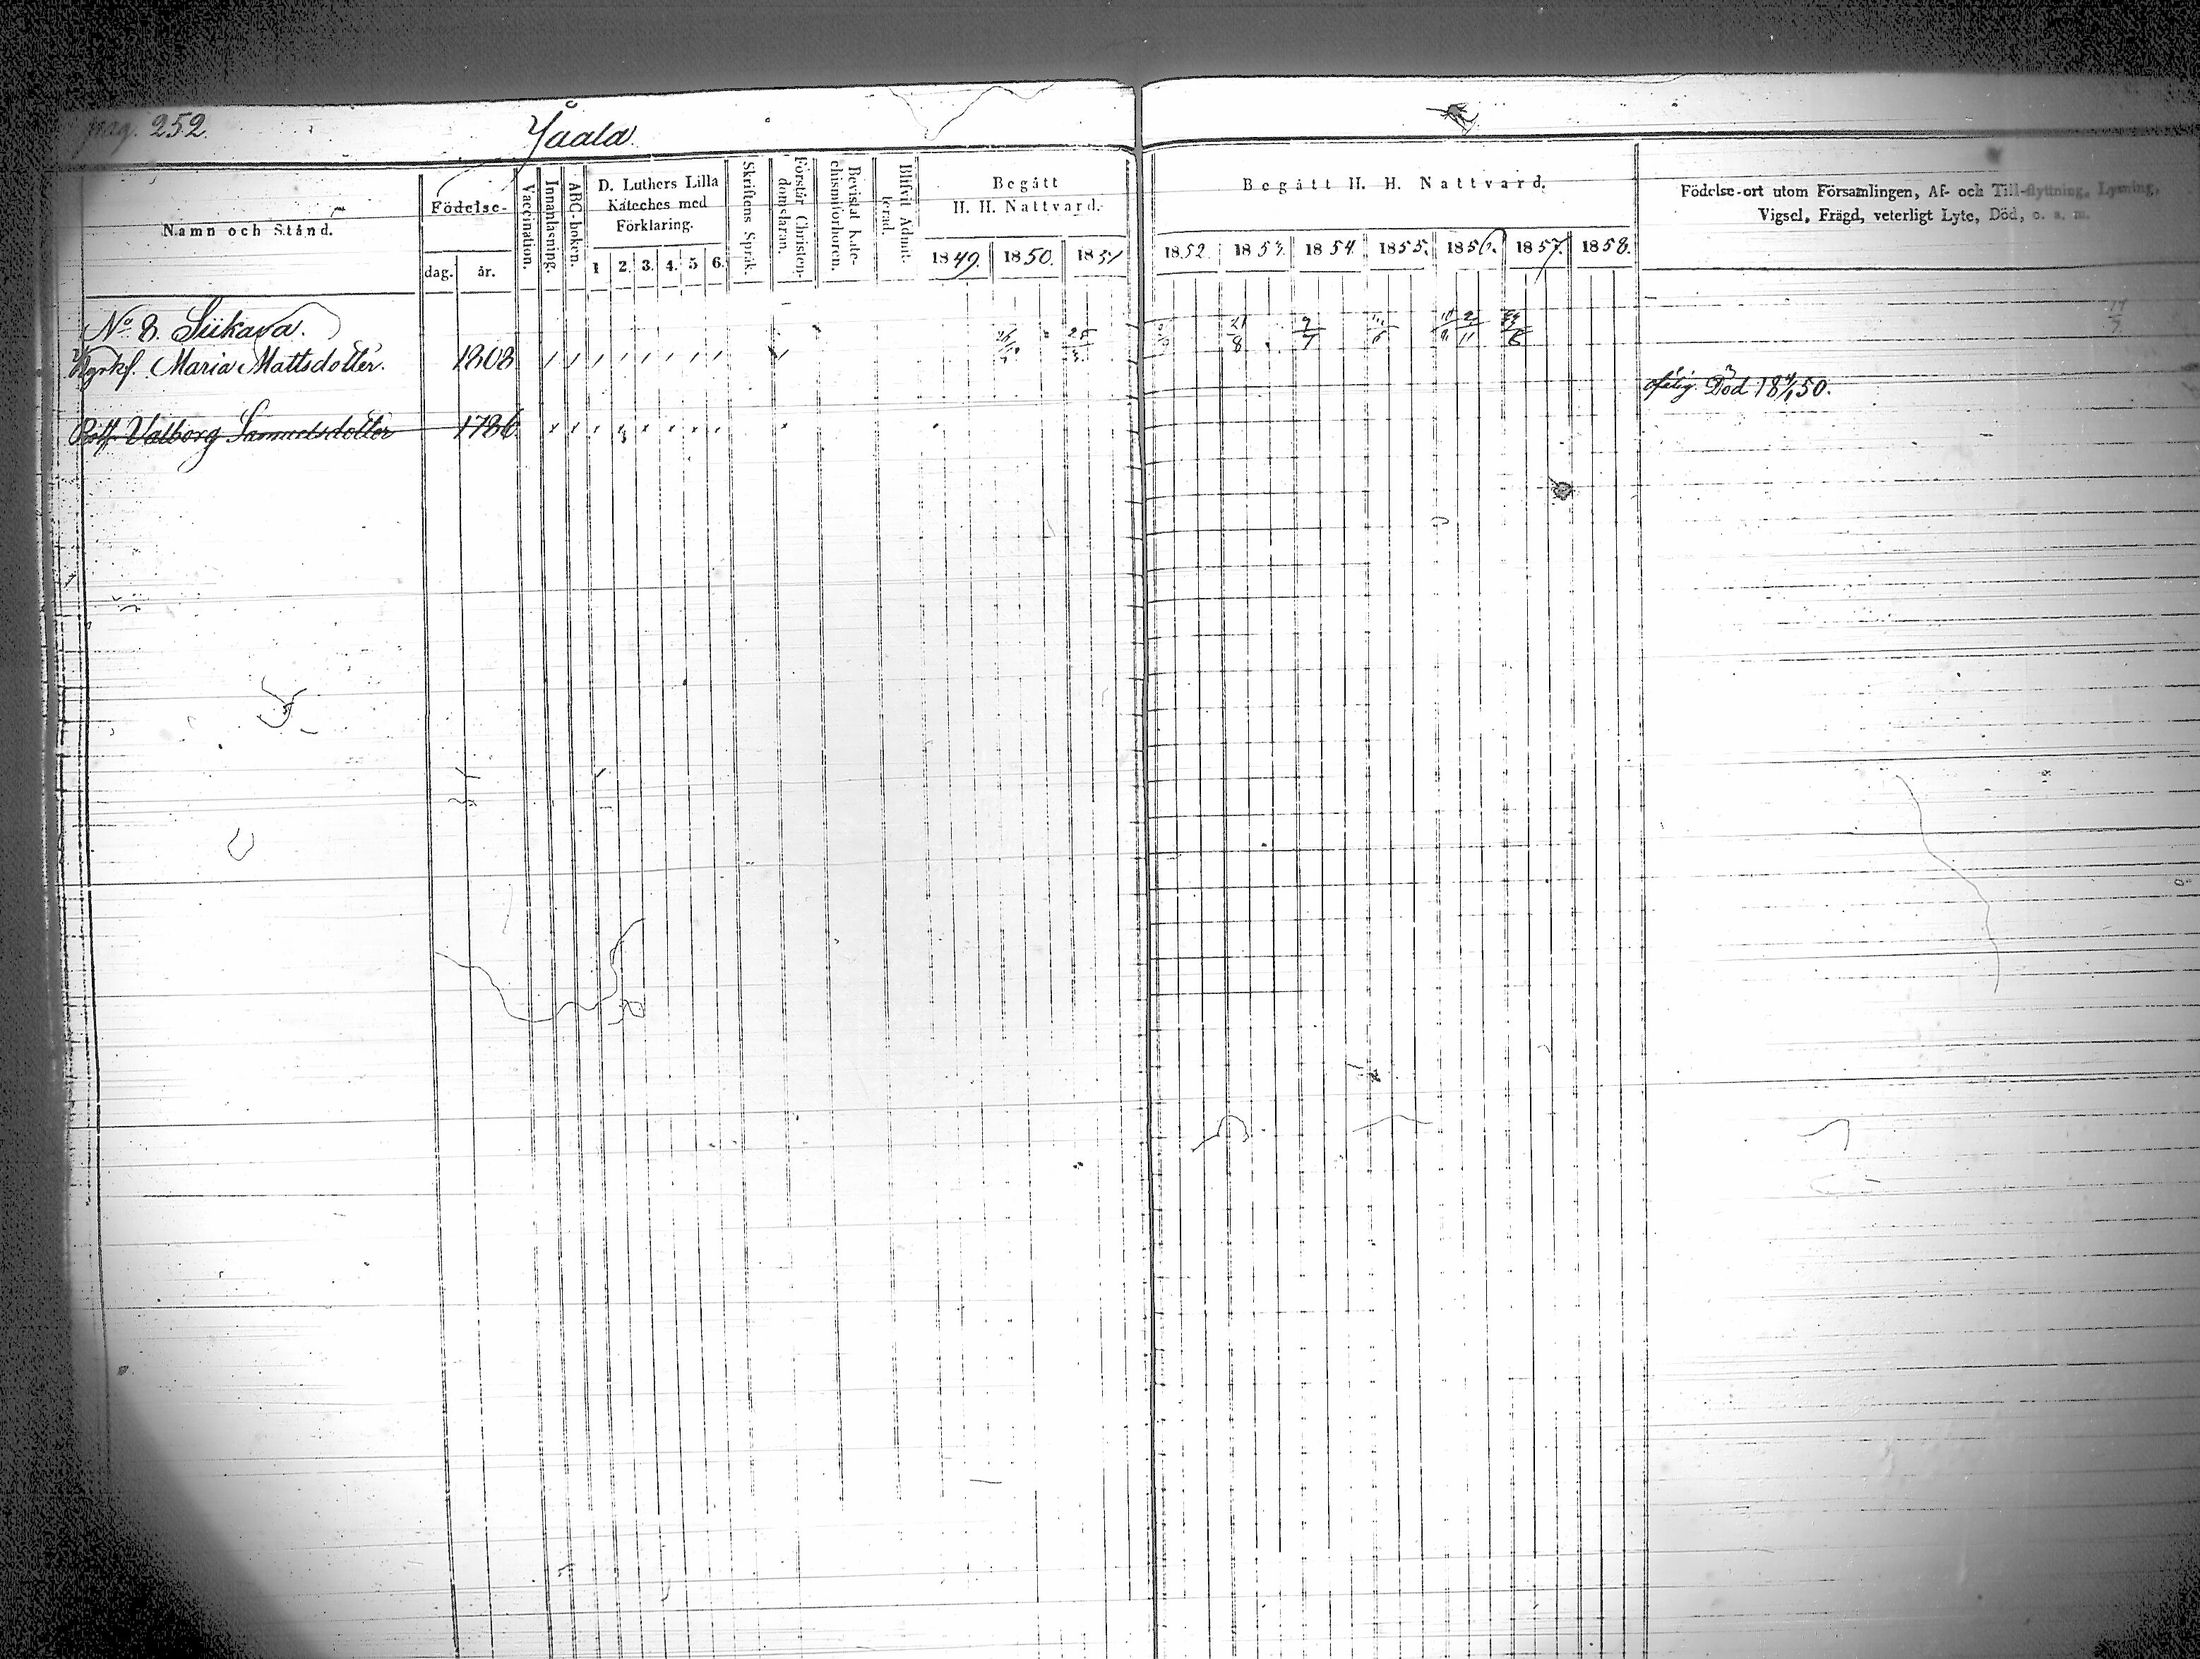 pag. 252.
Yåala.
Namn och Stånd.
Födelse-
dag. år.
Vaccination.
Innanläsning.
ABC-boken.
D. Luthers Lilla
Kateches med
Förklaring.
1 2. 3. 4. 5 6.
Skriftens Språk.
Förstår Christen-
domsläran.
Bevistat Kate-
chismiförhören.
Blifvit Admit-
terad.
Begått
H. H. Nattvard.
1849. 1850. 1851
Begått H. H. Nattvard.
1852. 1853. 1854. 1855. 1856. 1857. 1858.
Födelse-ort utom Församlingen, Af- och Till-flyttning, Lysning,
Vigsel, Frägd, veterligt Lyte, Död, o. s. m.
No 8. Siikava.
Maria Mattsdotter. 1808
21/8 9/7
Död 18 4/1 50.
Valborg Samuelsdotter 1786